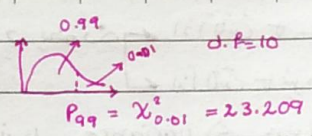 0.99
0.01
d.f=10
P99 = χ²0.01 = 23.209